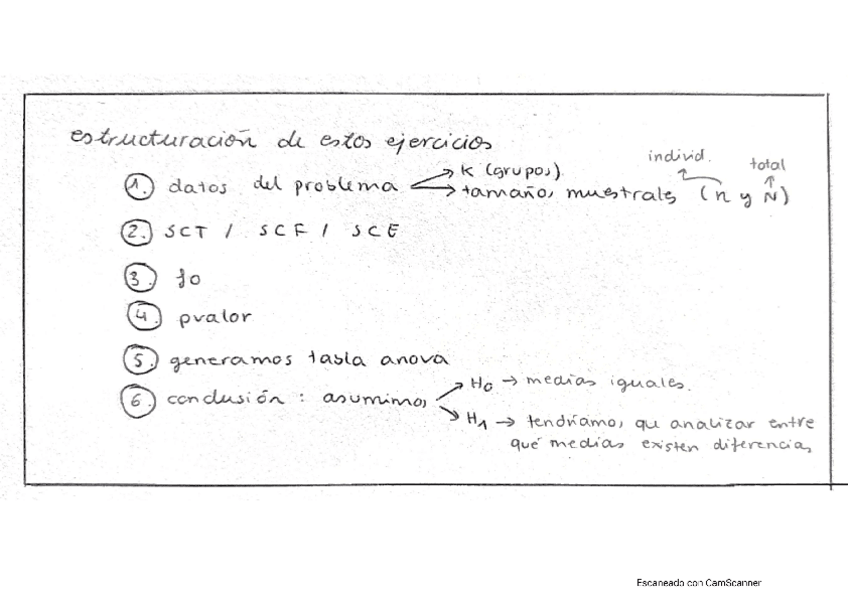 estructuración de estos ejercicios
1. datos del problema → K (grupos).
→ tamaños muestrales (n y N)
individ. total
2. SCT / SCF / SCE
3. fo
4. pvalor
5. generamos tabla anova
6. conclusión: asumimos → H0 → medias iguales.
→ H1 → tendríamos que analizar entre
qué medias existen diferencias
Escaneado con CamScanner